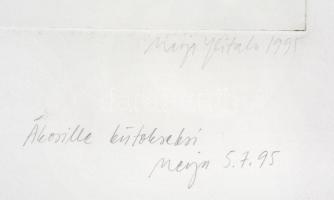 Meija Ylitalo 1995
Ákosille kiitokseksi
Meija 5.7.95